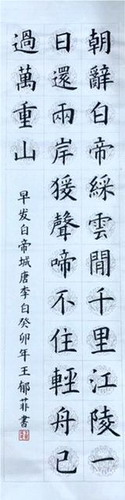 朝辭白帝綵雲間千里江陵一
日還兩岸猨聲啼不住輕舟已
過萬重山
早发白帝城唐李白癸卯年王郁菲書